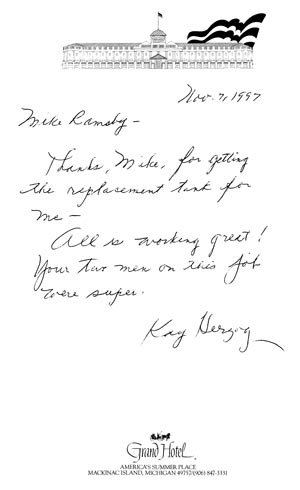 Nov. 7, 1997
Mike Ramsby -
Thanks, Mike, for getting
the replacement tank for
me -
All is working great!
Your two men on this job
were super.
Kay Herzog
Grand Hotel
AMERICA'S SUMMER PLACE
MACKINAC ISLAND, MICHIGAN 49757/(906) 847-3331